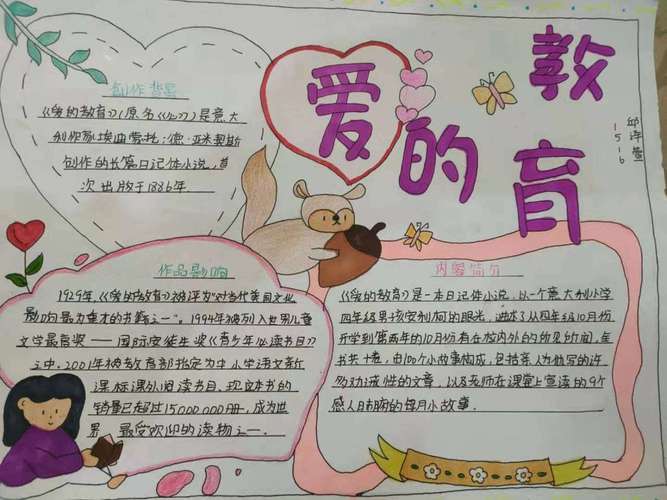 爱的教育
邱泽萱
1516
创作背景
《爱的教育》（原名《心》）是意大
利作家埃迪蒙托·德·亚米契斯
创作的长篇日记体小说，首
次出版于1886年.
作品影响
1929年,《爱的教育》被评为“对当代美国文化
影响最为重大的书籍之一”。1994年被列入世界儿童
文学最高奖——国际安徒生奖《青少年必读书目》
之中.2001年被教育部指定为中小学语文新
课标课外阅读书目.现这本书的
销量已超过15000000册，成为世
界最受欢迎的读物之一.
内容简介
《爱的教育》是一本日记体小说，以一个意大利小学
四年级男孩安利柯的眼光，讲述了从四年级10月份
开学到第二年的10月份有在校内外的所见所闻，全
书共十卷，由100个小故事构成，包括亲人为他写的许
多劝诫性的文章，以及老师在课堂上宣读的9个
感人肺腑的每月小故事.